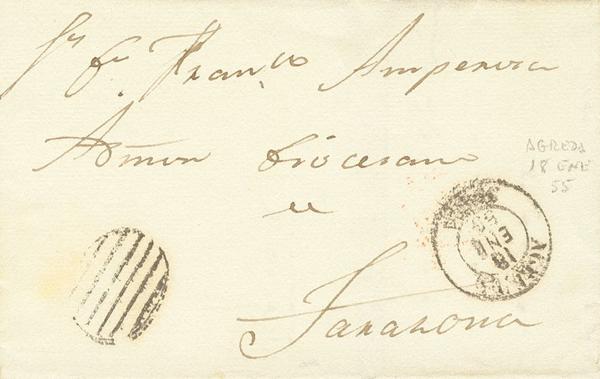 Sr Dn Franco Amperosa
Admon Diocesano
de
Tarazona
AGREDA
18 ENE
55
18
ENE